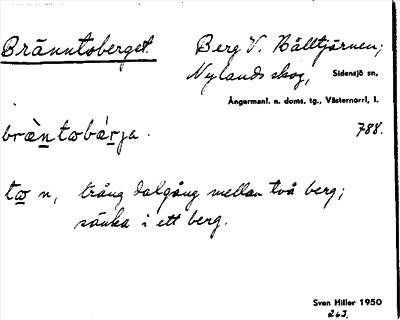 Bränntoberget.
Berg V. Bålltjärnen;
Nylands skog, Sidensjö sn,
Ångermanl. n. doms. tg., Västernorrl, l.
788.
bræ̀ntωbær̀ja.
tω n, trång dalgång mellan två berg;
sänka i ett berg.
Sven Hiller 1950
263.